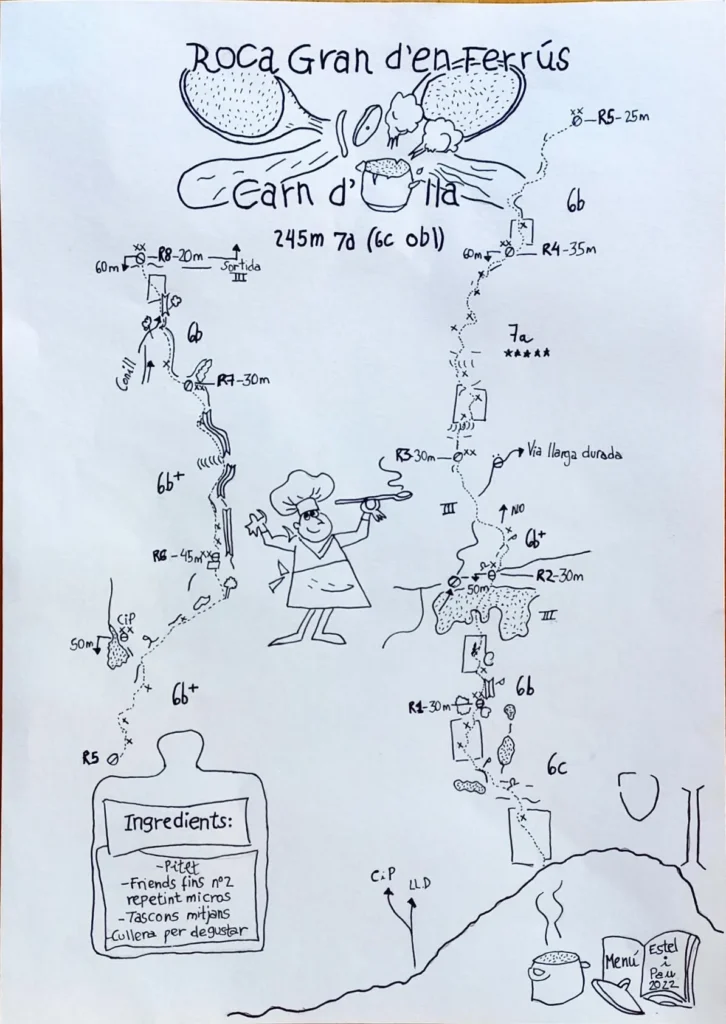 Roca Gran d'en Ferrús
Carn d'Olla
245m 7a (6c obl)
xx R5-25m
6b
60m xx R4-35m
7a
★★★★★
R3-30m xx
Via llarga durada
III
NO
6b+
R2-30m
50m
III
6b
R1-30m xx
6c
xx R8-20m
60m
Sortida
III
6b
Canill
xx R7-30m
6b+
R6-45m xx
CiP
xx
50m
6b+
R5
Ingredients:
-Pitet
-Friends fins nº2
repetint micros
-Tascons mitjans
-Cullera per degustar
CiP
LLD
Menú
Estel
i
Pau
2022